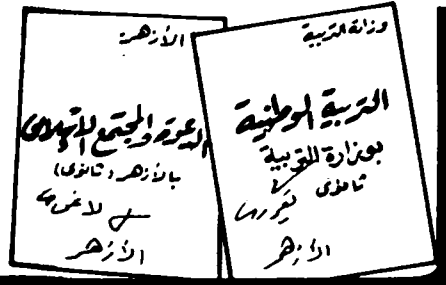 وزارة التربية
التربية الوطنية
بوزارة التربية
ثانوى
الأزهر
الأزهر
الدعوة والمجتمع الإسلامى
بالأزهر (ثانوى)
الأزهر